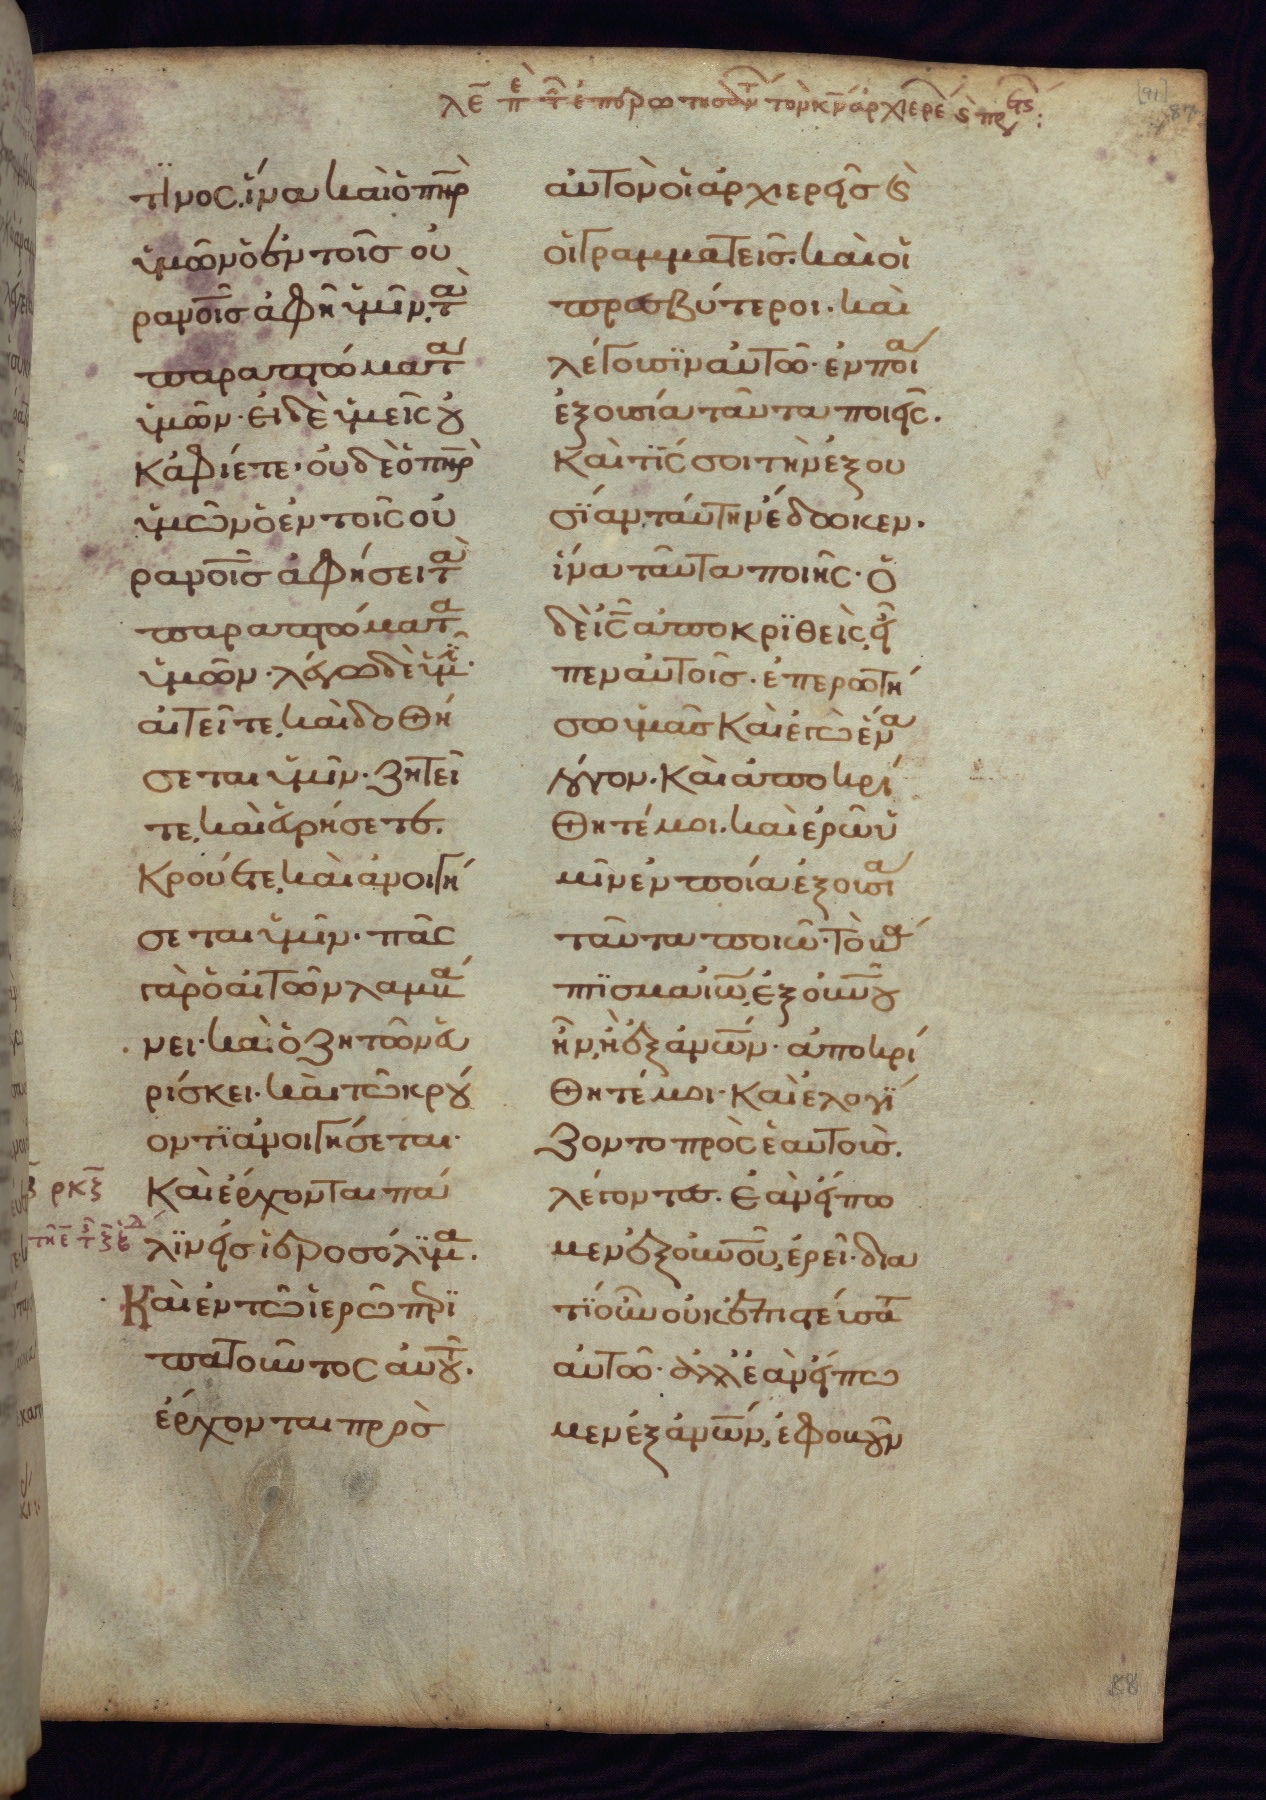 τινος. ἵνα καὶ ὁ πηρ
ὑμῶν ὁ ἐν τοῖς οὐ
ρανοῖς ἀφῆ ὑμῖν τὰ
παραπτώματα
ὑμῶν· εἰ δὲ ὑμεῖς οὐ
κ ἀφίετε· οὐδὲ ὁ πηρ
ὑμῶν ὁ ἐν τοῖς οὐ
ρανοῖς ἀφήσει τὰ
παραπτώματα
ὑμῶν· λέγω δὲ ὑμῖ·
αἰτεῖτε, καὶ δοθή
σεται ὑμῖν· ζητεῖ
τε, καὶ εὑρήσετε.
Κρούετε, καὶ ἀνοιγή
σεται ὑμῖν· πᾶς
γὰρ ὁ αἰτῶν λαμβά
νει· καὶ ὁ ζητῶν εὑ
ρίσκει· καὶ τῶ κρού
οντι ἀνοιγήσεται·
ρκξ
Καὶ ἔρχονται πά
λιν εἰς ἱεροσόλυμα.
Καὶ ἐν τῶ ἱερῶ περι
πατοῦντος αὐτοῦ.
ἔρχονται πρὸς
αὐτὸν οἱ ἀρχιερεῖς καὶ
οἱ γραμματεῖς. καὶ οἱ
πρεσβύτεροι. καὶ
λέγουσιν αὐτῶ· ἐν ποία
ἐξουσία ταῦτα ποιεῖς.
Καὶ τίς σοι τὴν ἐξου
σίαν ταύτην ἔδωκεν.
ἵνα ταῦτα ποιῆς· ὁ
δὲ ις ἀποκριθεὶς, εἶ
πεν αὐτοῖς. ἐπερωτή
σω ὑμᾶς Καὶ ἐγὼ ἕνα
λόγον. Καὶ ἀποκρί
θητέ μοι. καὶ ἐρῶ ὑ
μῖν ἐν ποία ἐξουσία
ταῦτα ποιῶ· Τὸ βά
πτισμα ιω, ἐξ ουνου
ἦν, ἢ ἐξ ανων· ἀποκρί
θητέ μοι· Καὶ ἐλογί
ζοντο πρὸς ἑαυτοὺς.
λέγοντες. Ἐὰν εἴπω
μεν ἐξ ουνου, ἐρεῖ· δια
τί οὖν οὐκ ἐπιστεύσατε
αὐτῶ· ἀλλ' ἐὰν εἴπω
μεν ἐξ ανων, ἐφοβοῦν